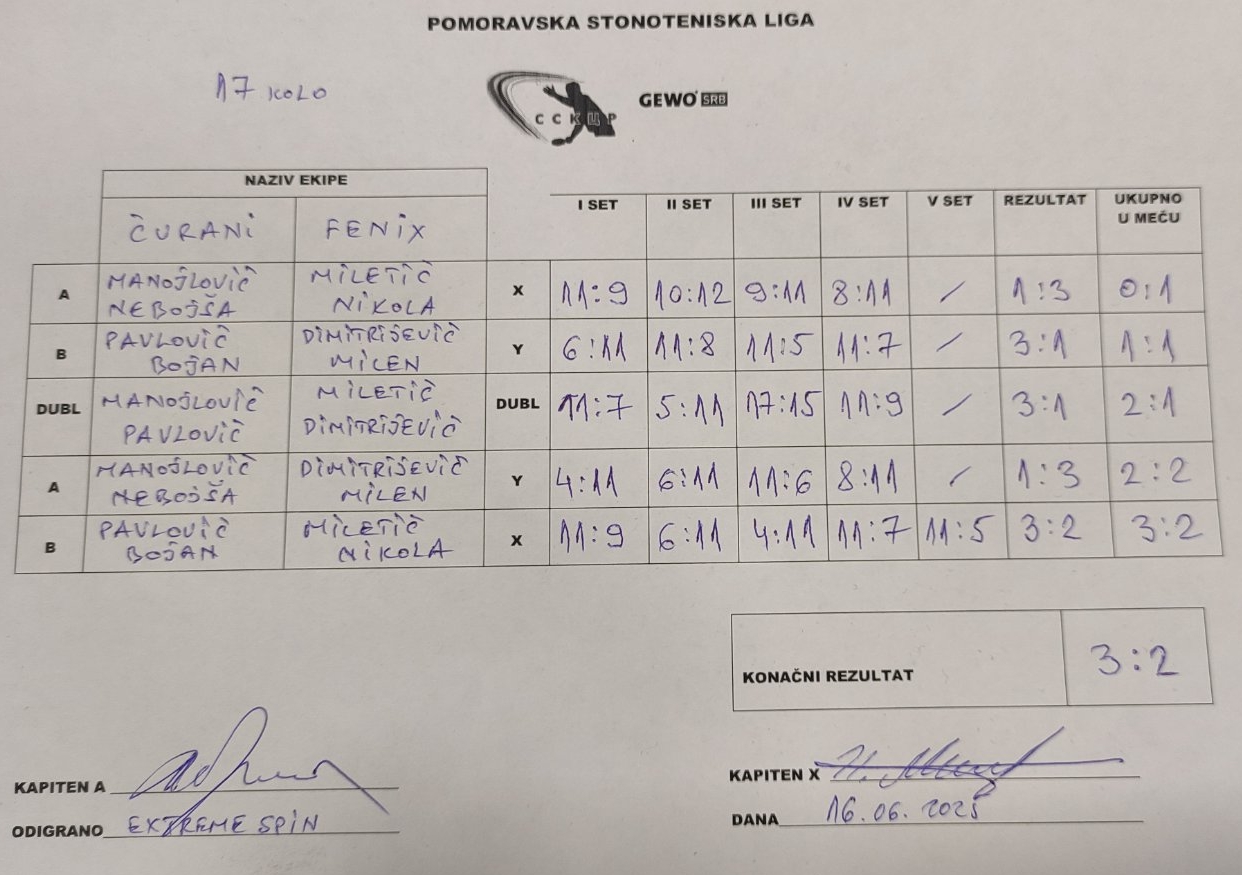 POMORAVSKA STONOTENISKA LIGA
17 KOLO
С С К Ц Р
GEWO SRB
NAZIV EKIPE
ČURANI FENIX I SET II SET III SET IV SET V SET REZULTAT UKUPNO U MEČU
A MANOJLOVIĆ NEBOJŠA MILETIĆ NIKOLA X 11:9 10:12 9:11 8:11 / 1:3 0:1
B PAVLOVIĆ BOJAN DIMITRIJEVIĆ MILEN Y 6:11 11:8 11:5 11:7 / 3:1 1:1
DUBL MANOJLOVIĆ PAVLOVIĆ MILETIĆ DIMITRIJEVIĆ DUBL 11:7 5:11 17:15 11:9 / 3:1 2:1
A MANOJLOVIĆ NEBOJŠA DIMITRIJEVIĆ MILEN Y 4:11 6:11 11:6 8:11 / 1:3 2:2
B PAVLOVIĆ BOJAN MILETIĆ NIKOLA X 11:9 6:11 4:11 11:7 11:5 3:2 3:2
KONAČNI REZULTAT 3:2
KAPITEN A
KAPITEN X
ODIGRANO EXTREME SPIN
DANA 16.06.2025